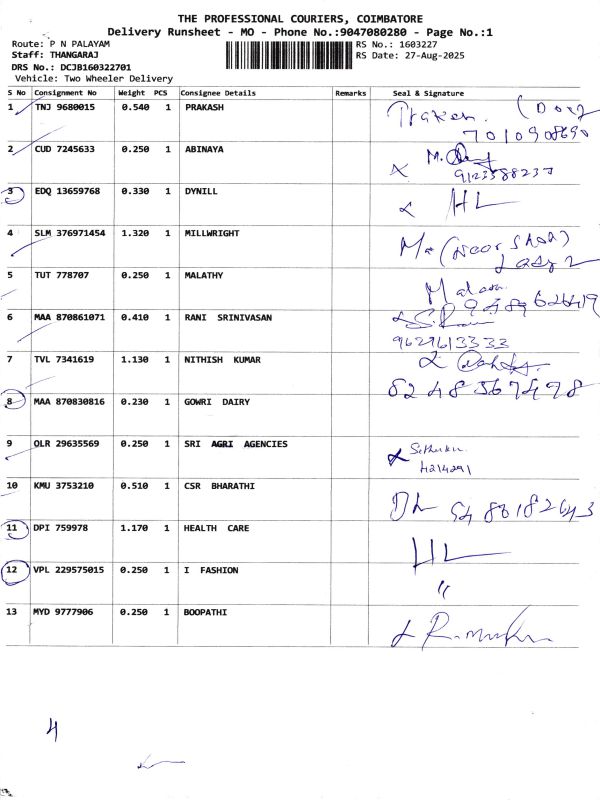 THE PROFESSIONAL COURIERS, COIMBATORE
Delivery Runsheet - MO - Phone No.:9047080280 - Page No.:1
Route: P N PALAYAM RS No.: 1603227
Staff: THANGARAJ RS Date: 27-Aug-2025
DRS No.: DCJB160322701
Vehicle: Two Wheeler Delivery
S No Consignment No Weight PCS Consignee Details Remarks Seal & Signature
1 TNJ 9680015 0.540 1 PRAKASH
7010908690
2 CUD 7245633 0.250 1 ABINAYA
3 EDQ 13659768 0.330 1 DYNILL HL
4 SLM 376971454 1.320 1 MILLWRIGHT
5 TUT 778707 0.250 1 MALATHY
6 MAA 870861071 0.410 1 RANI SRINIVASAN
9629613333
7 TVL 7341619 1.130 1 NITHISH KUMAR
8248567498
8 MAA 870830816 0.230 1 GOWRI DAIRY
9 OLR 29635569 0.250 1 SRI AGRI AGENCIES
10 KMU 3753210 0.510 1 CSR BHARATHI
11 DPI 759978 1.170 1 HEALTH CARE HL
12 VPL 229575015 0.250 1 I FASHION "
13 MYD 9777906 0.250 1 BOOPATHI
4